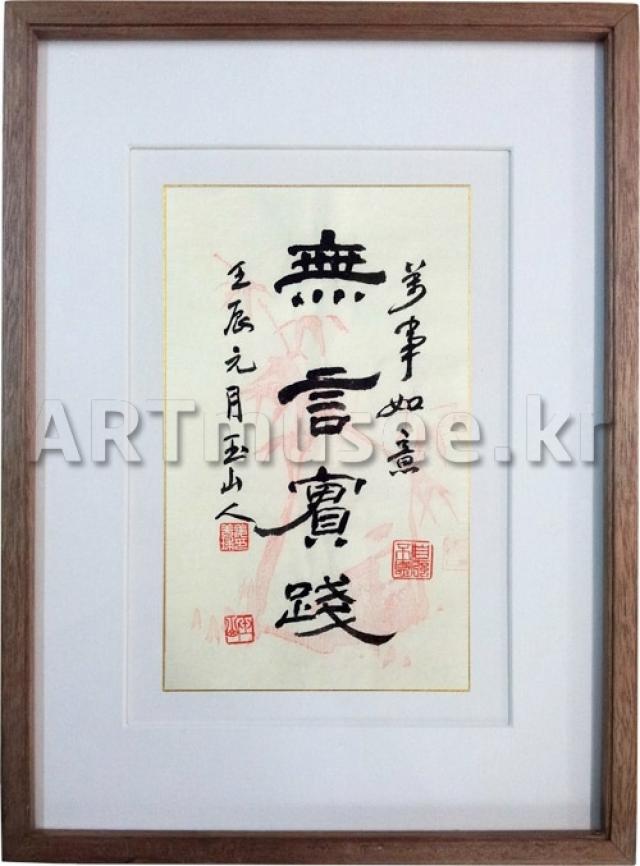 萬事如意
無言實踐
壬辰元月玉山人
ARTmusee.kr